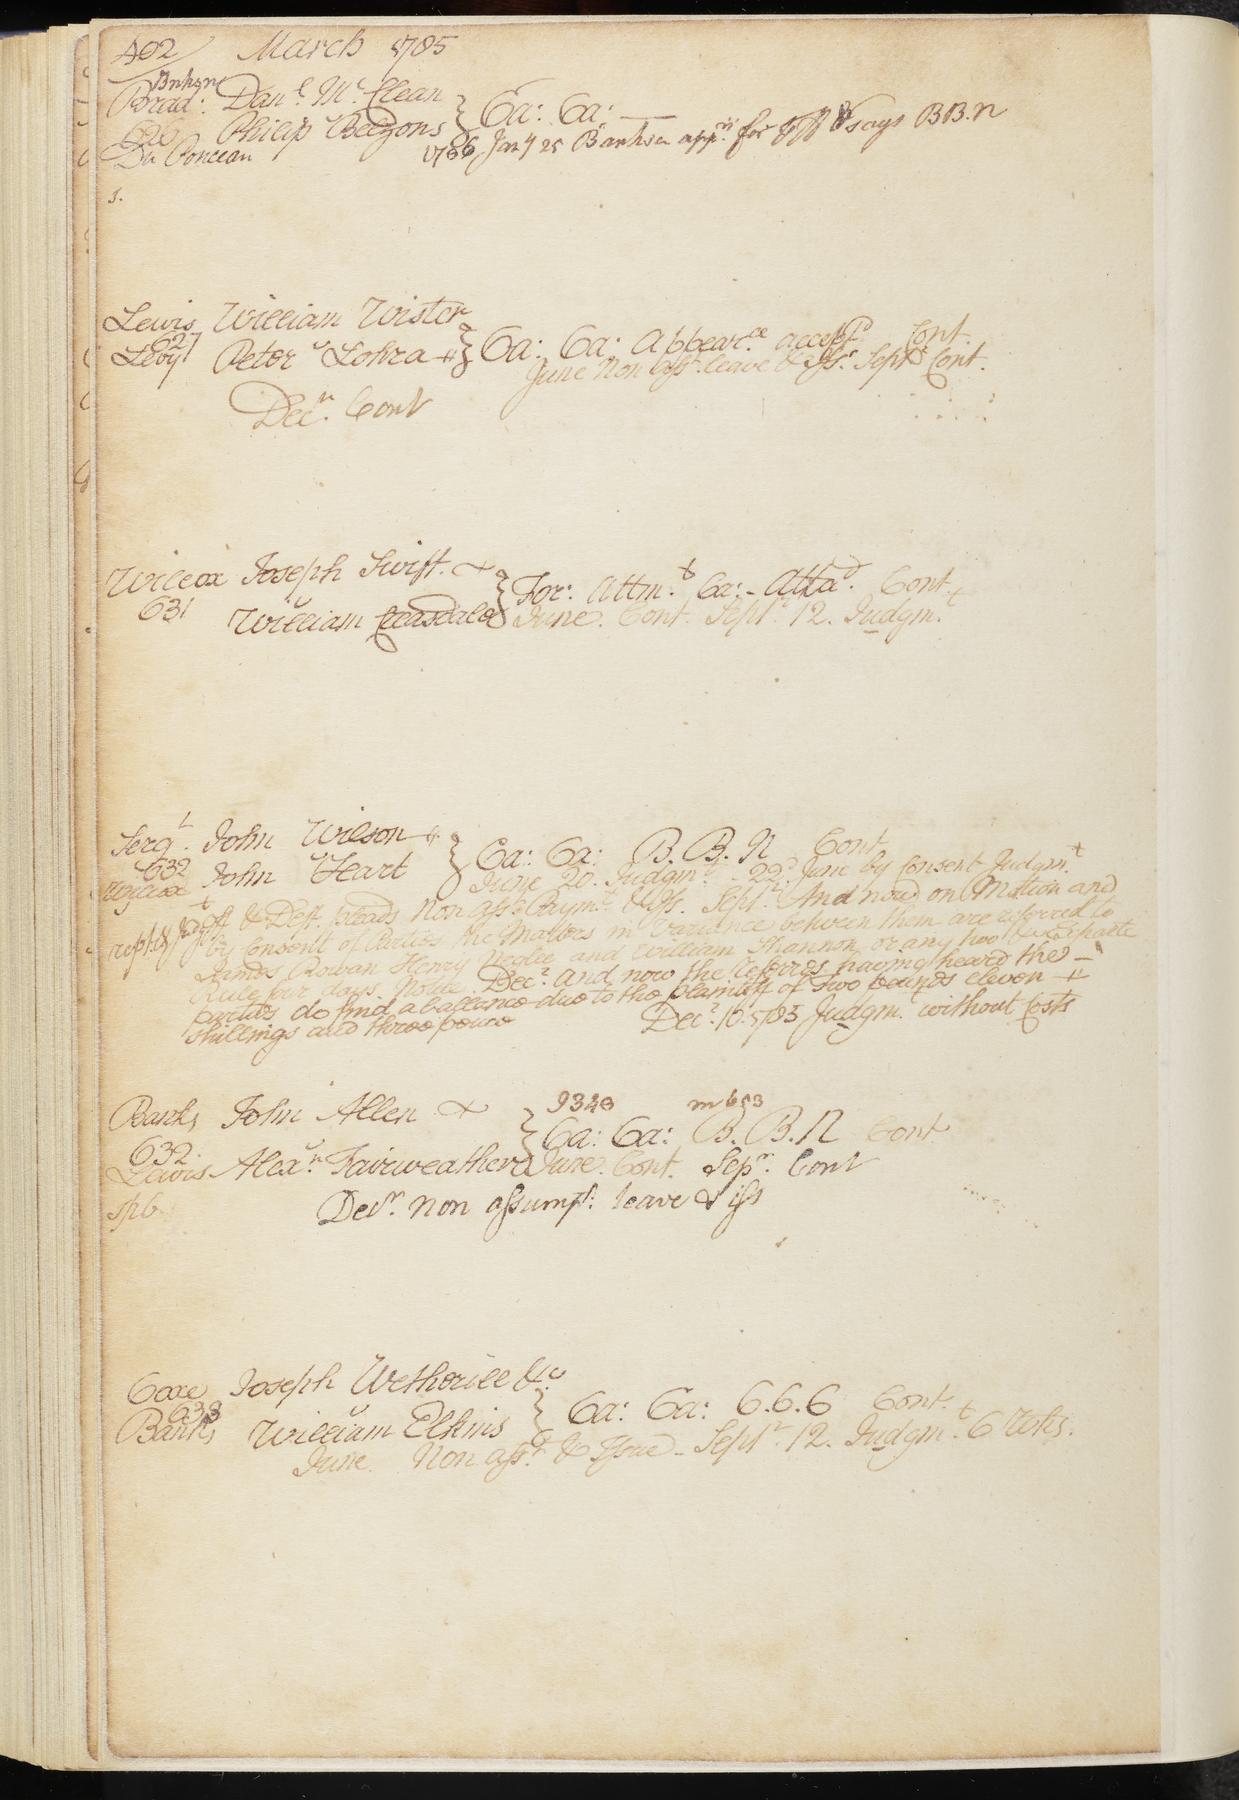 402 March 1785
Bnksn
Brad: Dan.l Mc Clean
Philip Belzons } Ca: Ca:
Du Ponceau 1786 Jany 25 Bankson app.rs for says BB.N
s.
Lewis William Wister
627
Levy Peter Lohra } Ca: Ca: Appear.ce accept.d Cont.
June Non Ass.t leave & Iss. Sept.r Cont.
Dec.r Cont
Wilcox Joseph Swift.
631 William Cleasdale } For: Attm.t Ca: - Atta.d Cont.
June. Cont. Sept.r 12. Judgm.t
Serg.t John Wilson
632
Wilcox John Heart } Ca: Ca: B. B. N Cont
June 20. Judgm.t - 22.d June by Consent Judgm.t
& Deft. pleads Non ass.t Paym.t & Iss. Sept.r And now on Motion and
by Consent of Parties the Matters in Variance between them are referred to
James Rowan Henry Neglee and William Shannon or any two & exparte
Rule four days. Notice. Dec.r And now the Referees having heard the
parties do find a ballance due to the plaintiff of Two pounds eleven
shillings and three pence Dec.r 10. 1785 Judgm. without Costs
9328 m 653
Banks John Allen
632.
Lewis Alex.r Fairweather } Ca: Ca: B. B. N Cont
June. Cont. Sep.r Cont
Dec.r non assumpt: leave & iss
spb
Coxe Joseph Wetherill &c
633
Banks William Elkins } Ca: Ca: C.C.C Cont.
June. Non ass.t & Issue - Sept.r 12. Judgm.t 6 Weks.